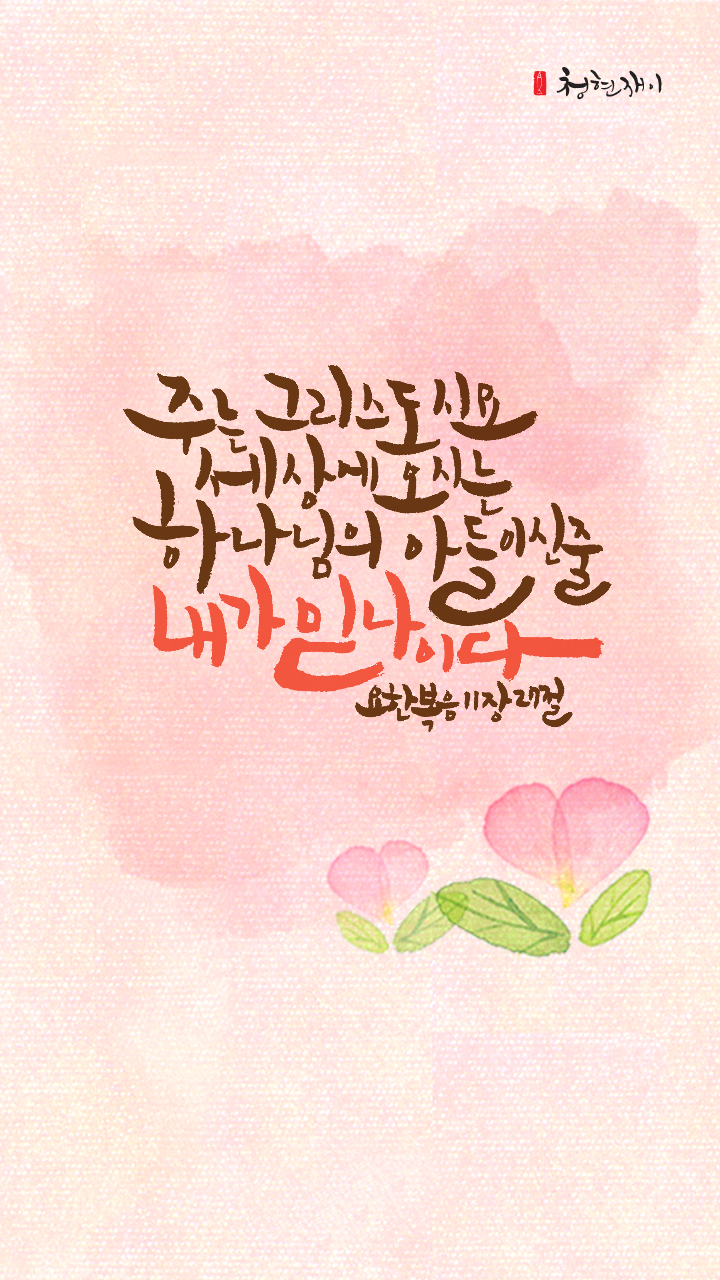 청현재이
주는 그리스도시요
세상에 오시는
하나님의 아들이신줄
내가 믿나이다
요한복음 11장 27절